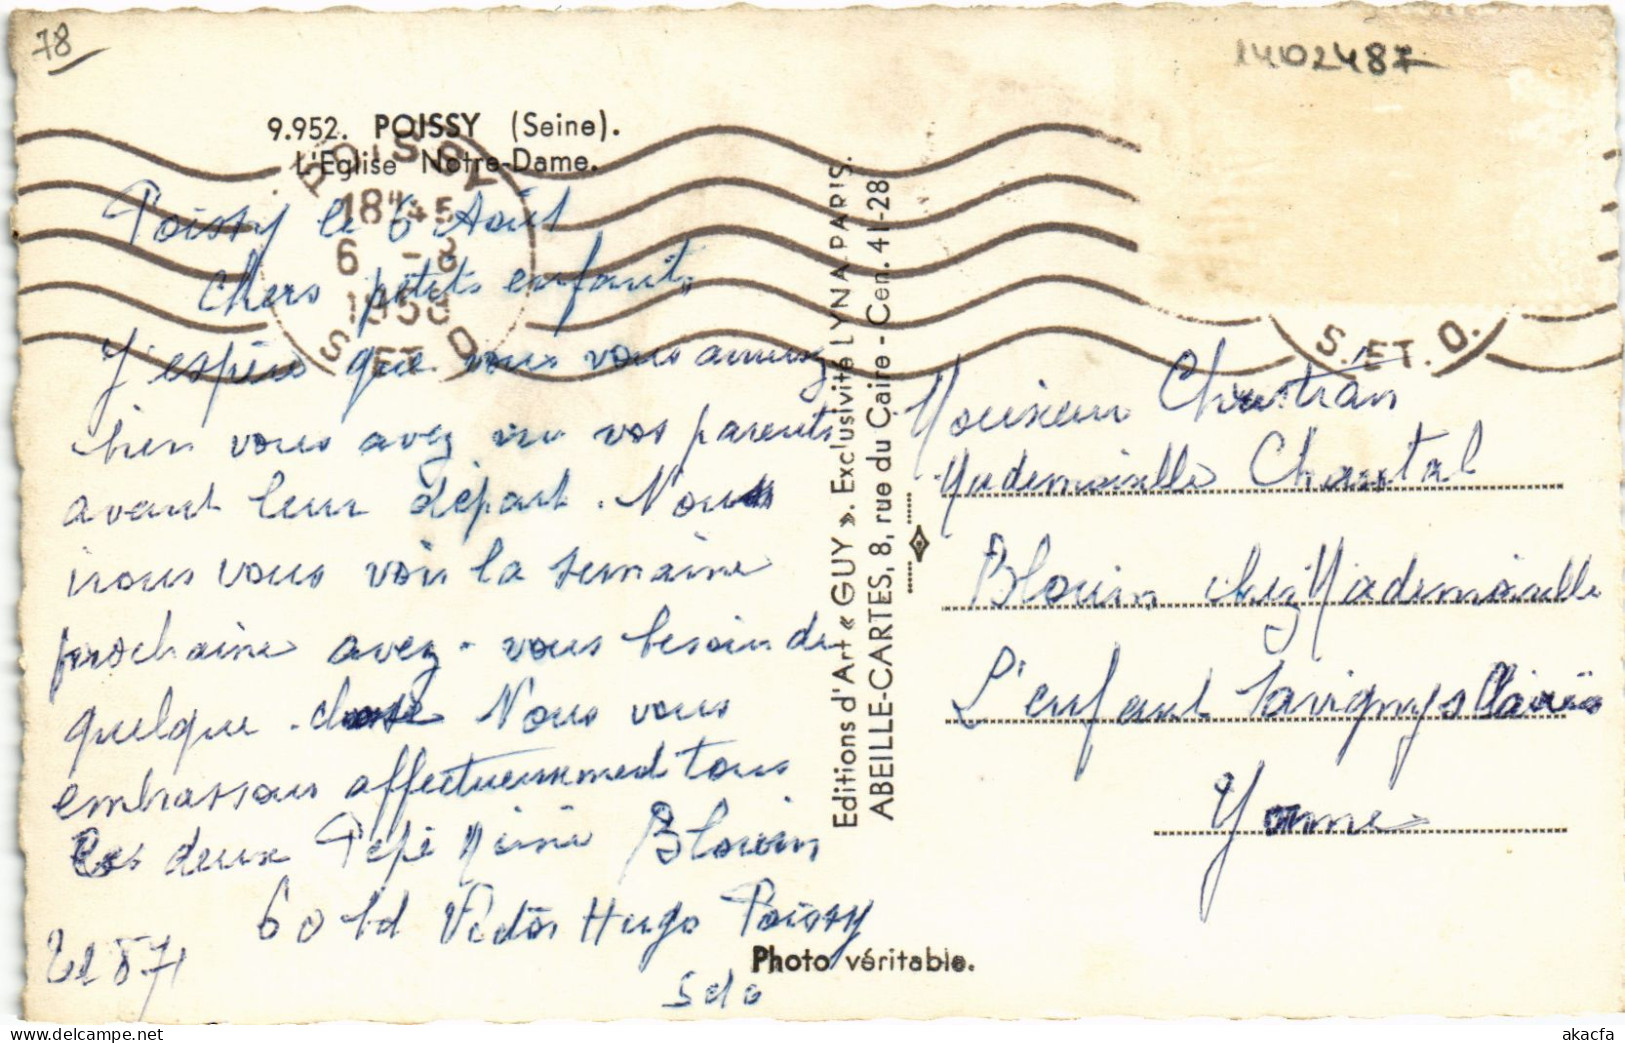 78
1402487
9.952. POISSY (Seine).
L'Eglise Notre-Dame.
POISSY
18H45
6 - 8
S ET O
S. ET. O.
Poissy le 6 Août
Chers petits enfants,
J'espère que vous vous amusez
bien vous avez vu vos parents
avant leur départ. Nous
irons vous voir la semaine
prochaine avez-vous besoin de
quelque chose Nous vous
embrassons affectueusement tous
les deux Pépé Mémé Blouin
60 bd Victor Hugo Poissy
S et O
Editions d'Art « GUY ». Exclusivité LYNA-PARIS.
ABEILLE-CARTES, 8, rue du Caire - Cen. 41-28
Monsieur Christian
Mademoiselle Chantal
Blouin chez Mademoiselle
L'enfant Savigny s Clairis
Yonne
Photo véritable.
akacfa